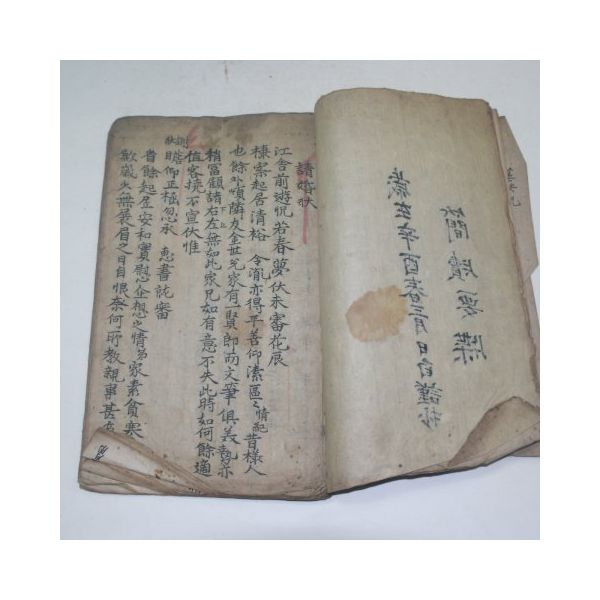 歲在辛酉春三月日自謹抄
請婚狀
江舍前遊怳若春夢伏未審花辰
棣案起居清裕 令胤亦得平善仰溸區〻情配昔樣人
也餘順隣友金世兄家有一賢郎而文筆俱美亦
稍富顧諸右左無如此家兄如有意不失此時如何餘適
值客撓不宣伏惟
瞻仰正極忽承 惠書託審
省餘起居安和實慰企想之情弟家素貧寒
歉歲又無展眉之日自恨奈何所教親事甚